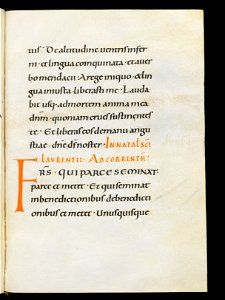 tus˙ De altitudine ventris infer
ni · et lingua coinquinata · et a ver
bo mendacii · A rege iniquo · & lin
gua iniusta · liberasti me · Lauda
bit usq; ad mortem anima mea
dnm · quoniam eruis sustinentes
te · Et liberas eos de manu angu
stiae · dne ds noster · IN NATALE SCI
LAURENTII · AD CORRINTH ·
FRS · QUI PARCE SEMINAT·
parce et metet · Et qui seminat
in benedictionibus de benedicti
onibus et metet · Unusquisque